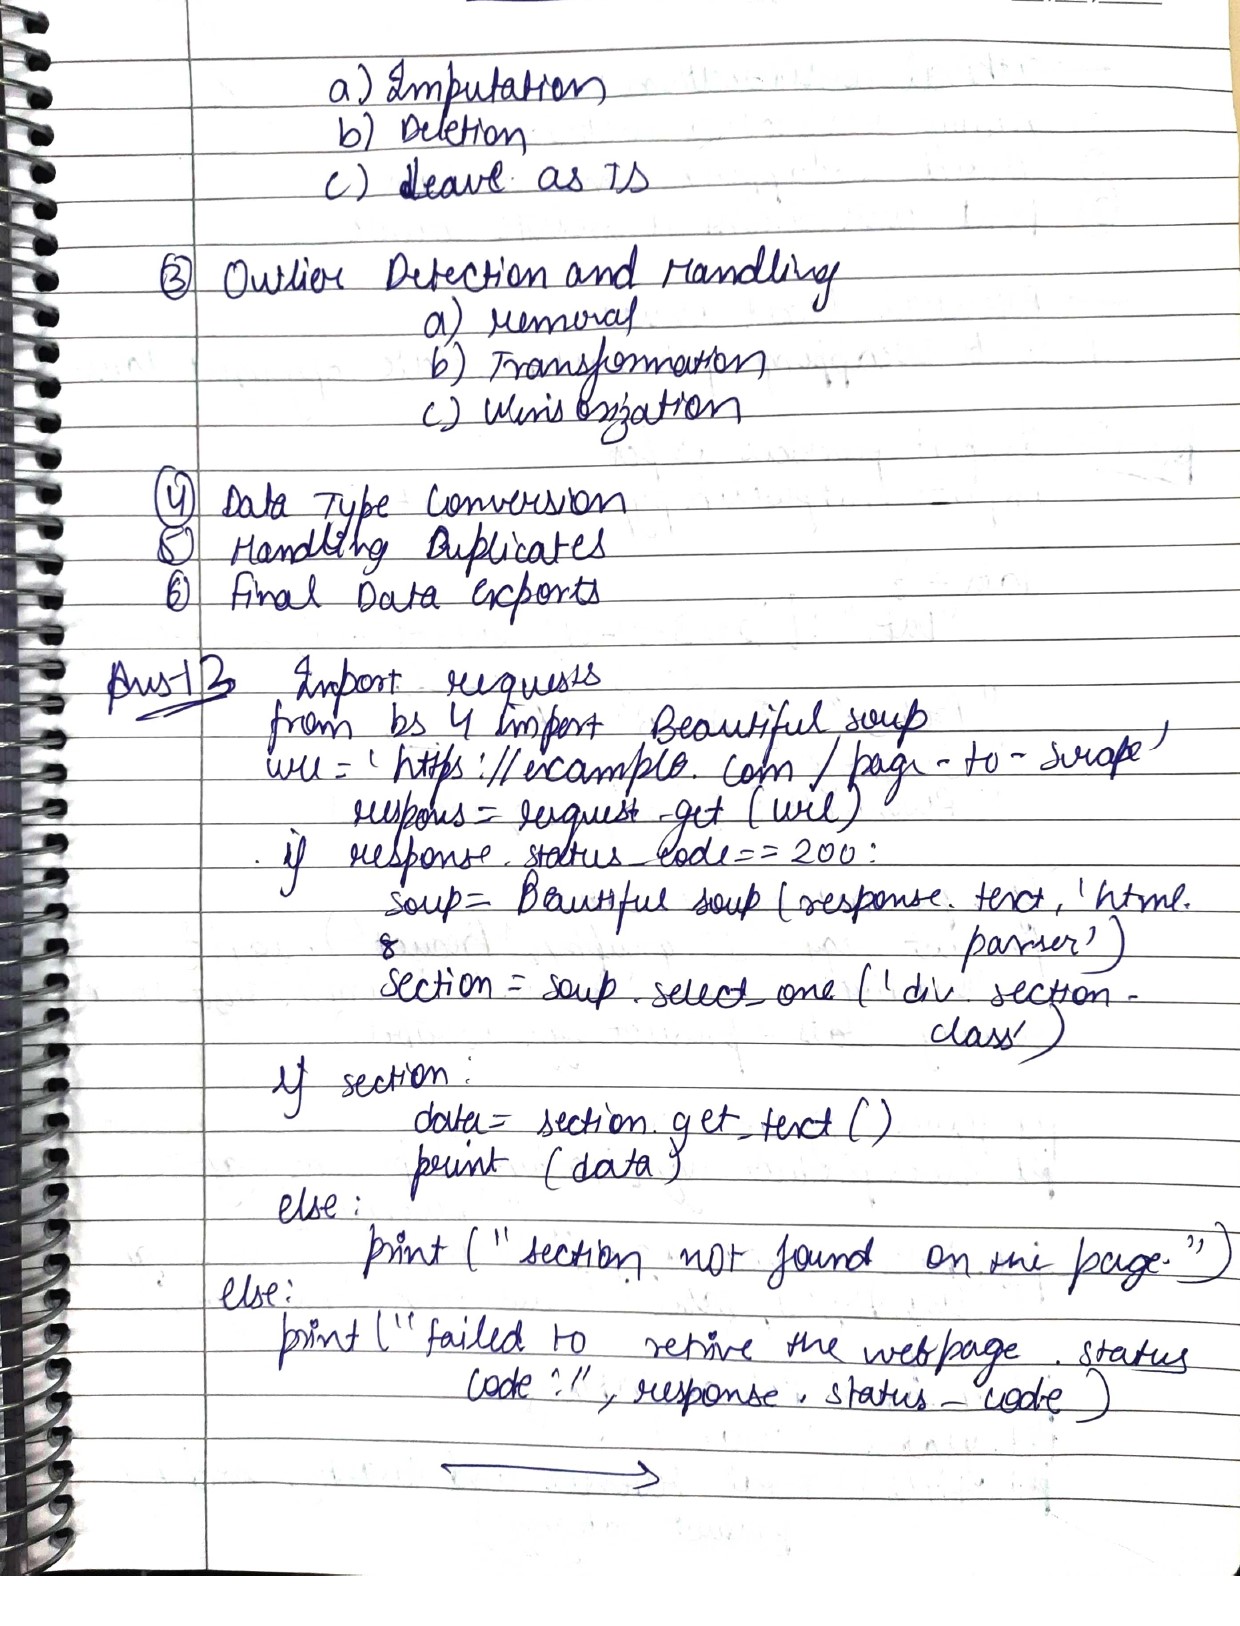 a) Imputation
b) Deletion
c) Leave as Is
③ Outlier Detection and Handling
a) removal
b) Transformation
c) Winsorization
④ Data Type Conversion
⑤ Handling Duplicates
⑥ Final Data exports
Ans-13 Import requests
from bs 4 import Beautiful soup
url = 'https://example.com/page-to-scrape'
respons = request.get (url)
if response.status_code == 200:
soup = Beautiful soup (response.text, 'html.
parser')
section = soup.select_one ('div.section-
class')
if section:
data = section.get_text ()
print (data)
else:
print ("section not found on the page.")
else:
print ("failed to retrive the webpage. status
code:", response.status_code)